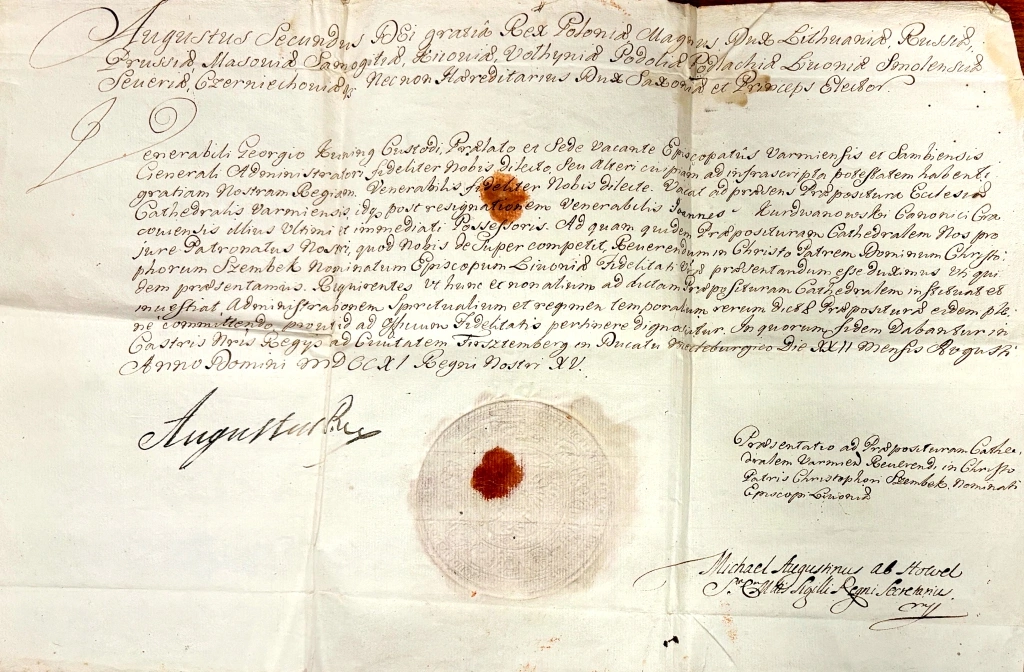 Augustus Secundus DEi gratiâ Rex Poloniæ, Magnus Dux Lithuaniæ, Russiæ,
Prussiæ Masoviæ Samogitiæ, Kijoviæ, Volhyniæ Podoliæ Podlachiæ Livoniæ Smolensciæ
Severiæ, Czerniechoviæq; Necnon Hæreditarius Dux Saxoniæ et Princeps Elector.
Venerabili Georgio Kuning Custodi, Prælato et Sede Vacante Episcopatûs Varmiensis et Sambiensis
Generali Administratori fideliter Nobis dilecto, Seu Alteri cuipiam ad infrascripta potestatem habenti
gratiam Nostram Regiam. Venerabilis fideliter Nobis dilecte. Vacat ad præsens Præpositura Ecclesiæ
Cathedralis Varmiensis, idq; post resignationem Venerabilis Joannis Kurdwanowski Canonici Cra
coviensis illius Ultimi et immediati Possessoris. Ad quam quidem Præposituram Cathedralem Nos pro
jure Patronatus Nostri, quod Nobis de Super competit, Reverendum in Christo Patrem Dominum Christo-
phorum Szembek Nominatum Episcopum Livoniæ Fidelitati Vræ præsentandum esse duximus Uti qui
dem præsentamus. Requirentes Ut hunc et non alium ad dictam Præposituram Cathedralem instituat et
investiat, Administrationem Spiritualium et regimen temporalium rerum dictæ Præposituræ eidem ple
ne committendo, prout id ad Officium Fidelitatis pertinere dignoscitur. In quorum fidem Dabantur in
Castris Nris Regys ad Civitatem Firsztemberg in Ducatu Mecleburgico Die XXII Mensis Augusti
Anno Domini MDCCXI Regni Nostri XV.
Augustus Rex
Præsentatio ad Præposituram Cathe-
dralem Varmien Reverendi in Christo
Patris Christophori Szembek, Nominati
Episcopi Livoniæ
Michael Augustinus ab
Sigilli Regni Secretarius.